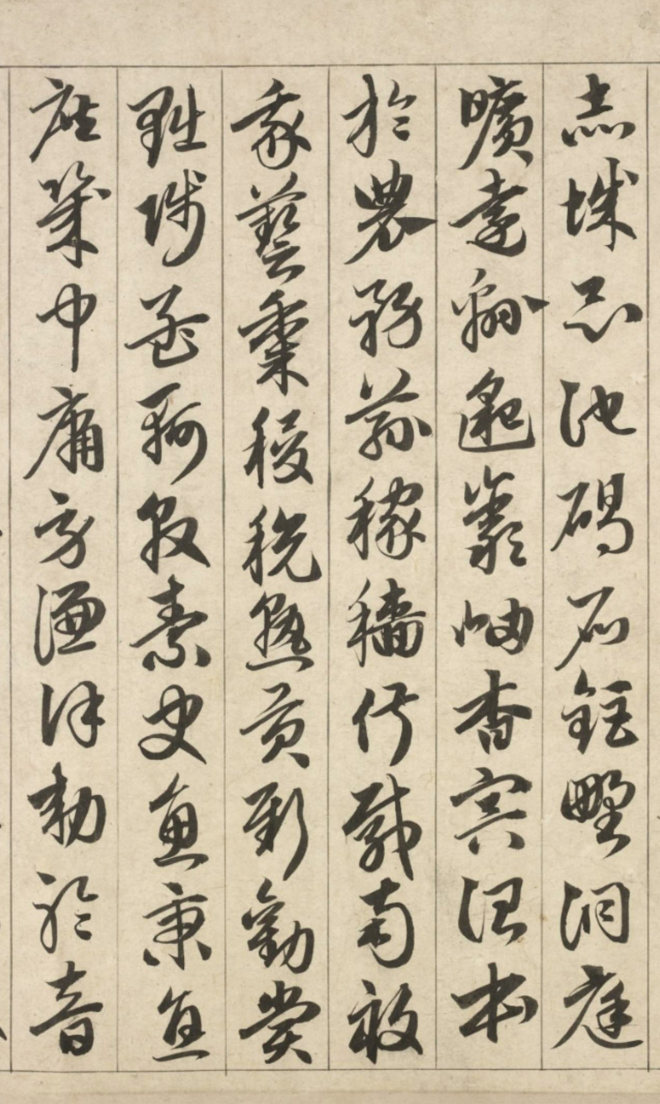 赤城昆池碣石鉅野洞庭
曠遠綿邈巖岫杳冥治本
於農務茲稼穡俶載南畝
我藝黍稷稅熟貢新勸賞
黜陟孟軻敦素史魚秉直
庶幾中庸勞謙謹勅聆音